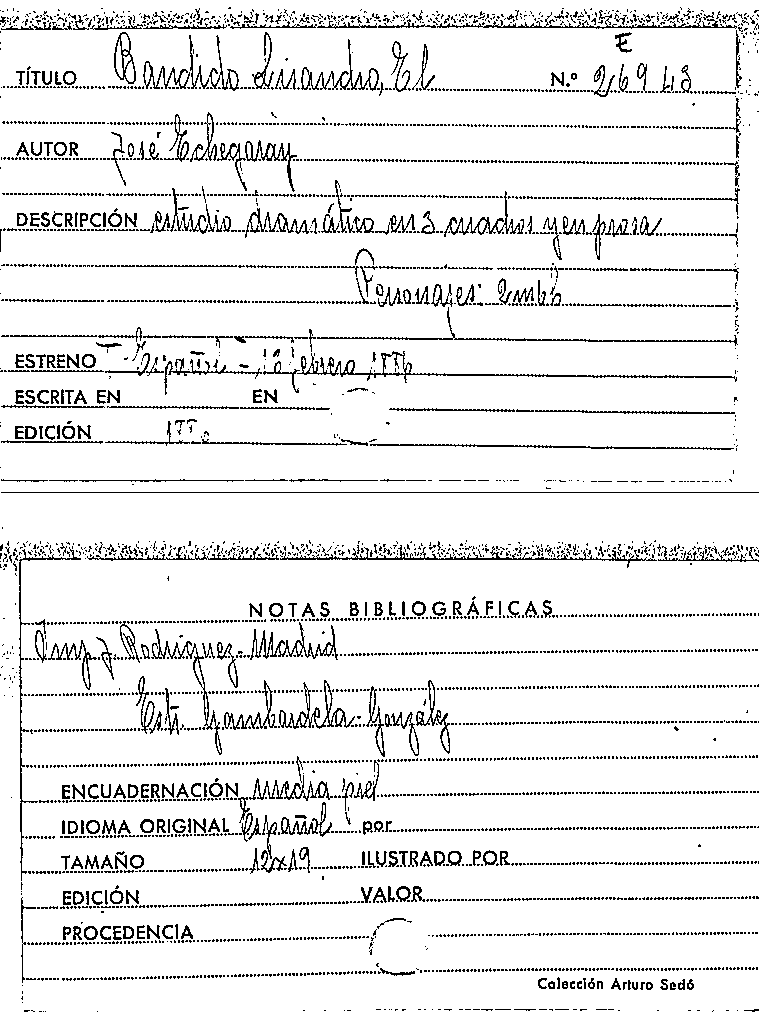 E
TÍTULO Bandido Lisandro, El N.º 26943
AUTOR José Echegaray
DESCRIPCIÓN estudio dramático en 3 cuadros y en prosa
Personajes: 2m6h
ESTRENO - Español - 13 febrero 1886
ESCRITA EN EN
EDICIÓN 1886
NOTAS BIBLIOGRÁFICAS
Imp. J. Rodríguez - Madrid
Estr. Gambardela - González
ENCUADERNACIÓN media piel
IDIOMA ORIGINAL Español por
TAMAÑO 12x19 ILUSTRADO POR
EDICIÓN VALOR
PROCEDENCIA
Colección Arturo Sedó